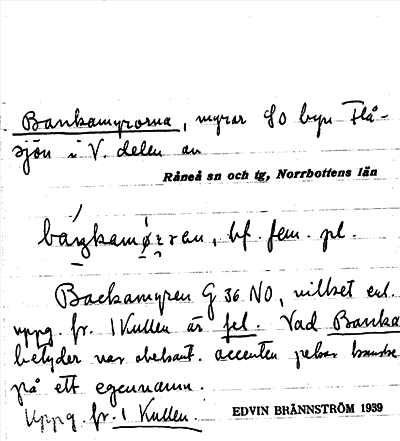 Bankamyrorna, myrar SO byn Flå-
sjön i V. delen av
Råneå sn och tg, Norrbottens län
bf. fem. pl.
Backamyren G 36 NO, vilket enl.
uppg. fr. 1 Kullen är fel. Vad Banka
betyder var obekant. accenten pekar kanske
på ett egennamn.
Uppg. fr. 1 Kullen.
EDVIN BRÄNNSTRÖM 1939